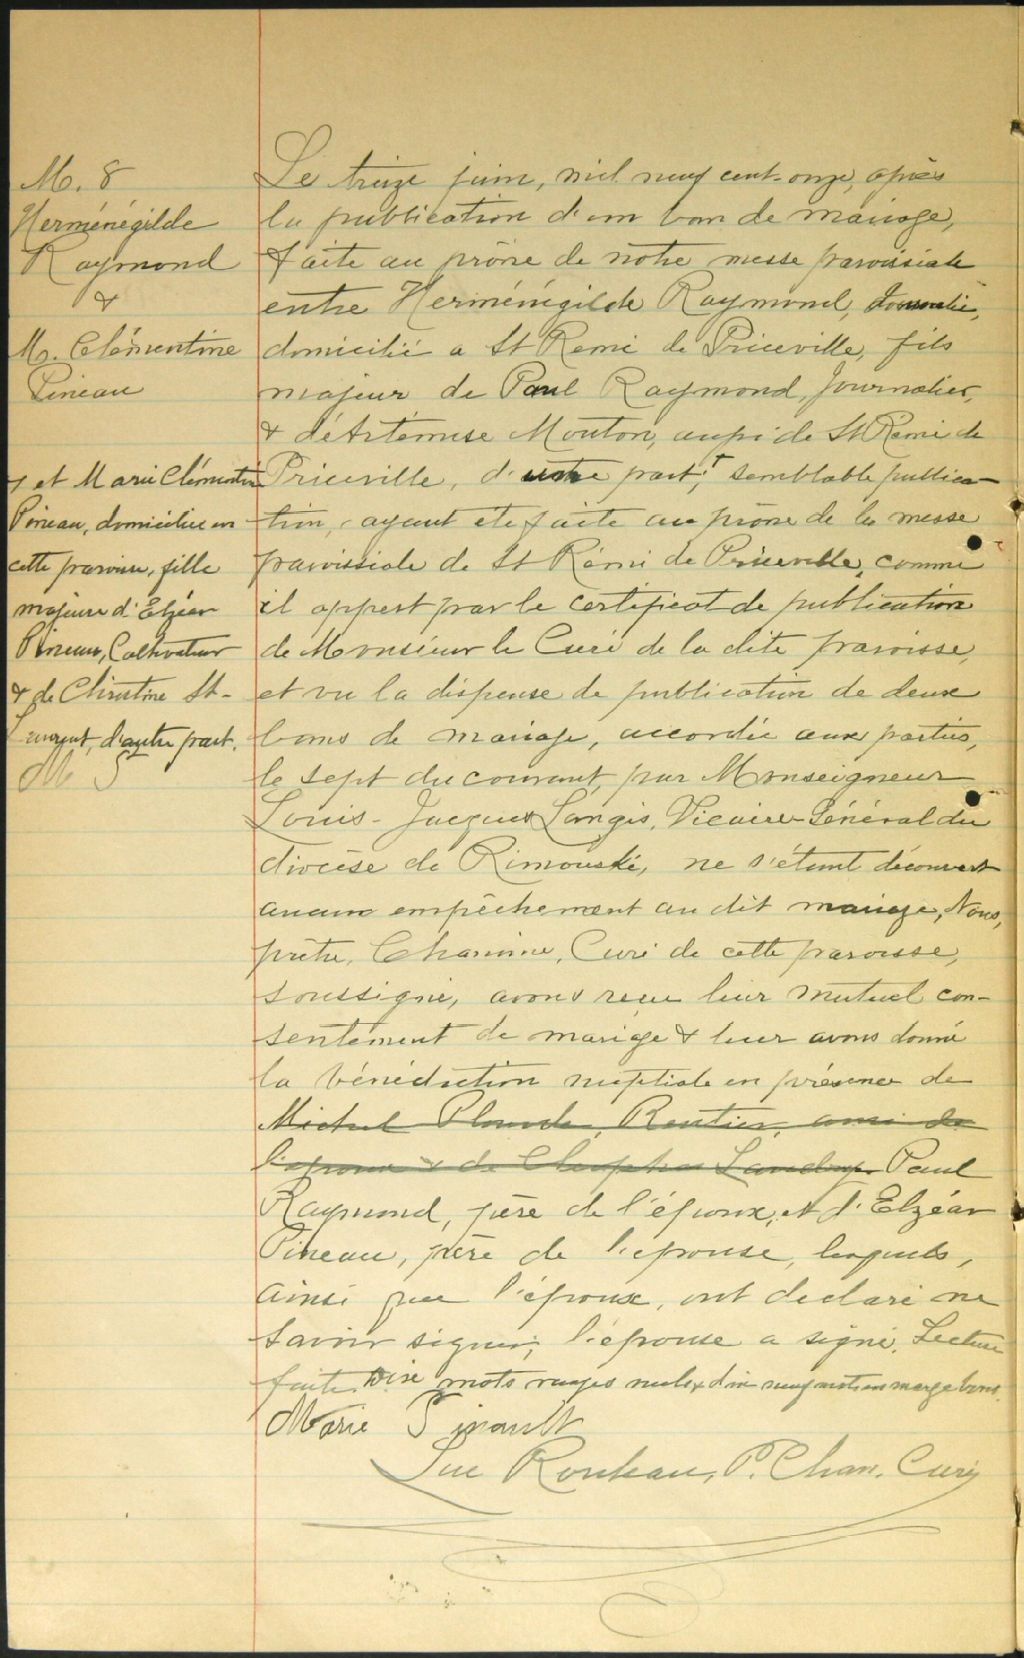 M. 8
Herménégilde
Raymond
&
M. Clémentine
Pineau
+ et Marie Clémentine
Pineau, domiciliée en
cette paroisse, fille
majeure d'Elzéar
Pineau, Cultivateur
& de Christine St-
Laurent, d'autre part.
M P
Le treize juin, mil neuf cent-onze, après
la publication d'un ban de mariage,
faite au prône de notre messe paroissiale
entre Herménégilde Raymond, Journalier,
domicilié a St Remi de Priceville, fils
majeur de Paul Raymond, Journalier,
& de Artémise Mouton, aussi de St Rémi de
Priceville, d'une part; + semblable publica-
tion, ayant été faite au prône de la messe
paroissiale de St Rémi de Priceville, comme
il appert par le certificat de publication
de Monsieur le Curé de la dite paroisse,
et vu la dispense de publication de deux
bans de mariage, accordée aux parties,
le sept du courant, par Monseigneur
Louis-Jacques Langis, Vicaire-Général du
diocèse de Rimouski, ne s'étant découvert
aucun empêchement au dit mariage, Nous,
prêtre, Chanoine, Curé de cette paroisse,
soussigné, avons reçu leur mutuel con-
sentement de mariage & leur avons donné
la bénédiction nuptiale en présence de
Michel Plourde, Rentier, ami de
l'époux & de Cléophas Landry. Paul
Raymond, père de l'époux, et d'Elzéar
Pineau, père de l'épouse, lesquels,
ainsi que l'époux, ont déclaré ne
savoir signer; l'épouse a signé. Lecture
faite. Dix mots rayés nuls & dix neuf mots en marge bons.
Marie Pinault
Luc Rouleau, P. Chan. Curé